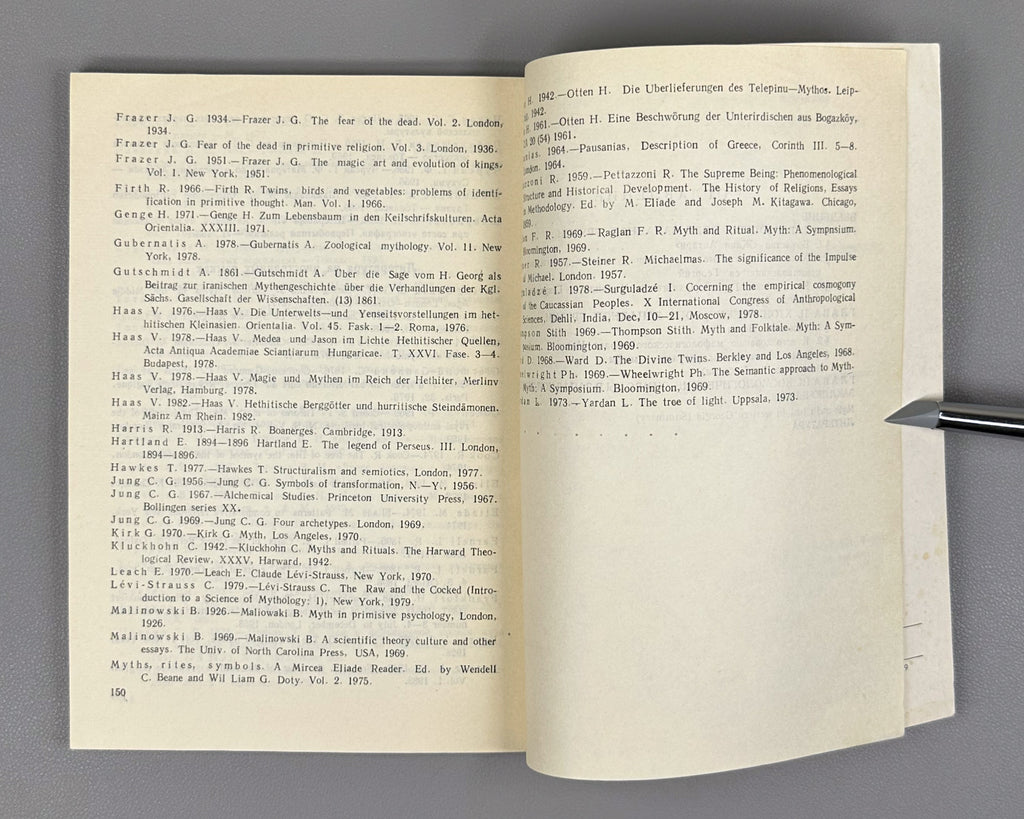 Frazer J. G. 1934.—Frazer J. G. The fear of the dead. Vol. 2. London,
1934.
Frazer J. G. Fear of the dead in primitive religion. Vol. 3. London, 1936.
Frazer J. G. 1951.—Frazer J. G. The magic art and evolution of kings.
Vol. 1. New York, 1951.
Firth R. 1966.—Firth R. Twins, birds and vegetables: problems of identi-
fication in primitive thought. Man. Vol. 1. 1966.
Genge H. 1971.—Genge H. Zum Lebensbaum in den Keilschrifskulturen. Acta
Orientalia. XXXIII. 1971.
Gubernatis A. 1978.—Gubernatis A. Zoological mythology. Vol. 11. New
York, 1978.
Gutschmidt A. 1861.—Gutschmidt A. Über die Sage vom H. Georg als
Beitrag zur iranischen Mythengeschichte über die Verhandlungen der Kgl.
Sächs. Gasellschaft der Wissenschaften. (13) 1861.
Haas V. 1976.—Haas V. Die Unterwelts—und Yenseitsvorstellungen im het-
hitischen Kleinasien. Orientalia. Vol. 45. Fask. 1—2. Roma, 1976.
Haas V. 1978.—Haas V. Medea und Jason im Lichte Hethitischer Quellen,
Acta Antiqua Academiae Sciantiarum Hungaricae. T. XXVI. Fase. 3—4.
Budapest, 1978.
Haas V. 1978.—Haas V. Magie und Mythen im Reich der Hethiter, Merlinv
Verlag, Hamburg. 1978.
Haas V. 1982.—Haas V. Hethitische Berggötter und hurritische Steindämonen.
Mainz Am Rhein. 1982.
Harris R. 1913.—Harris R. Boanerges. Cambridge. 1913.
Hartland E. 1894—1896 Hartland E. The legend of Perseus. III. London,
1894—1896.
Hawkes T. 1977.—Hawkes T. Structuralism and semiotics, London, 1977.
Jung C. G. 1956.—Jung C. G. Symbols of transformation, N.—Y., 1956.
Jung C. G. 1967.—Alchemical Studies. Princeton University Press, 1967.
Bollingen series XX.
Jung C. G. 1969.—Jung C. G. Four archetypes. London, 1969.
Kirk G. 1970.—Kirk G. Myth, Los Angeles, 1970.
Kluckhohn C. 1942.—Kluckhohn C. Myths and Rituals. The Harward Theo-
logical Review, XXXV, Harward, 1942.
Leach E. 1970.—Leach E. Claude Lévi-Strauss, New York, 1970.
Lévi-Strauss C. 1979.—Lévi-Strauss C. The Raw and the Cocked (Intro-
duction to a Science of Mythology: 1), New York, 1979.
Malinowski B. 1926.—Maliowaki B. Myth in primisive psychology, London,
1926.
Malinowski B. 1969.—Malinowski B. A scientific theory culture and other
essays. The Univ. of North Carolina Press, USA, 1969.
Myths, rites, symbols. A Mircea Eliade Reader. Ed. by Wendell
C. Beane and Wil Liam G. Doty. Vol. 2. 1975.
150
H. 1942.—Otten H. Die Uberlieferungen des Telepinu—Mythos. Leip-
1942.
1961.—Otten H. Eine Beschwörung der Unterirdischen aus Bogazköy,
(54) 1961.
1964.—Pausanias, Description of Greece, Corinth III. 5—8.
1964.
R. 1959.—Pettazzoni R. The Supreme Being: Phenomenological
Structure and Historical Development. The History of Religions, Essays
Methodology. Ed. by M. Eliade and Joseph M. Kitagawa. Chicago,
F. R. 1969.—Raglan F. R. Myth and Ritual. Myth: A Sympnsium.
Bloomington, 1969.
R. 1957.—Steiner R. Michaelmas. The significance of the Impulse
Michael. London. 1957.
I. 1978.—Surguladzé I. Cocerning the empirical cosmogony
the Caucassian Peoples. X International Congress of Anthropological
Sciences. Dehli, India, Dec, 10—21, Moscow, 1978.
Stith 1969.—Thompson Stith. Myth and Folktale. Myth: A Sym-
Bloomington, 1969.
D. 1968.—Ward D. The Divine Twins. Berkley and Los Angeles, 1968.
Ph. 1969.—Wheelwright Ph. The Semantic approach to Myth.
Myth: A Symposium. Bloomington, 1969.
L. 1973.—Yardan L. The tree of light. Uppsala, 1973.